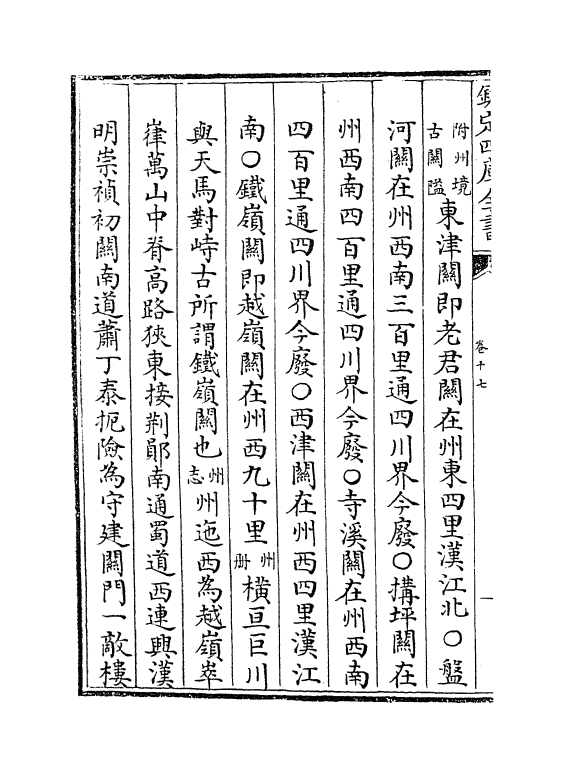 欽定四庫全書
卷十七
附州境
古關隘
東津關即老君關在州東四里漢江北〇盤
河關在州西南三百里通四川界今廢〇搆坪關在
州西南四百里通四川界今廢〇寺溪關在州西南
四百里通四川界今廢〇西津關在州西四里漢江
南〇鐵嶺關即越嶺關在州西九十里州冊橫亘巨川
與天馬對峙古所謂鐵嶺關也州志州迤西為越嶺崒
嵂萬山中脊高路狹東接荆鄖南通蜀道西連興漢
明崇禎初關南道蕭丁泰扼險為守建關門一敵樓